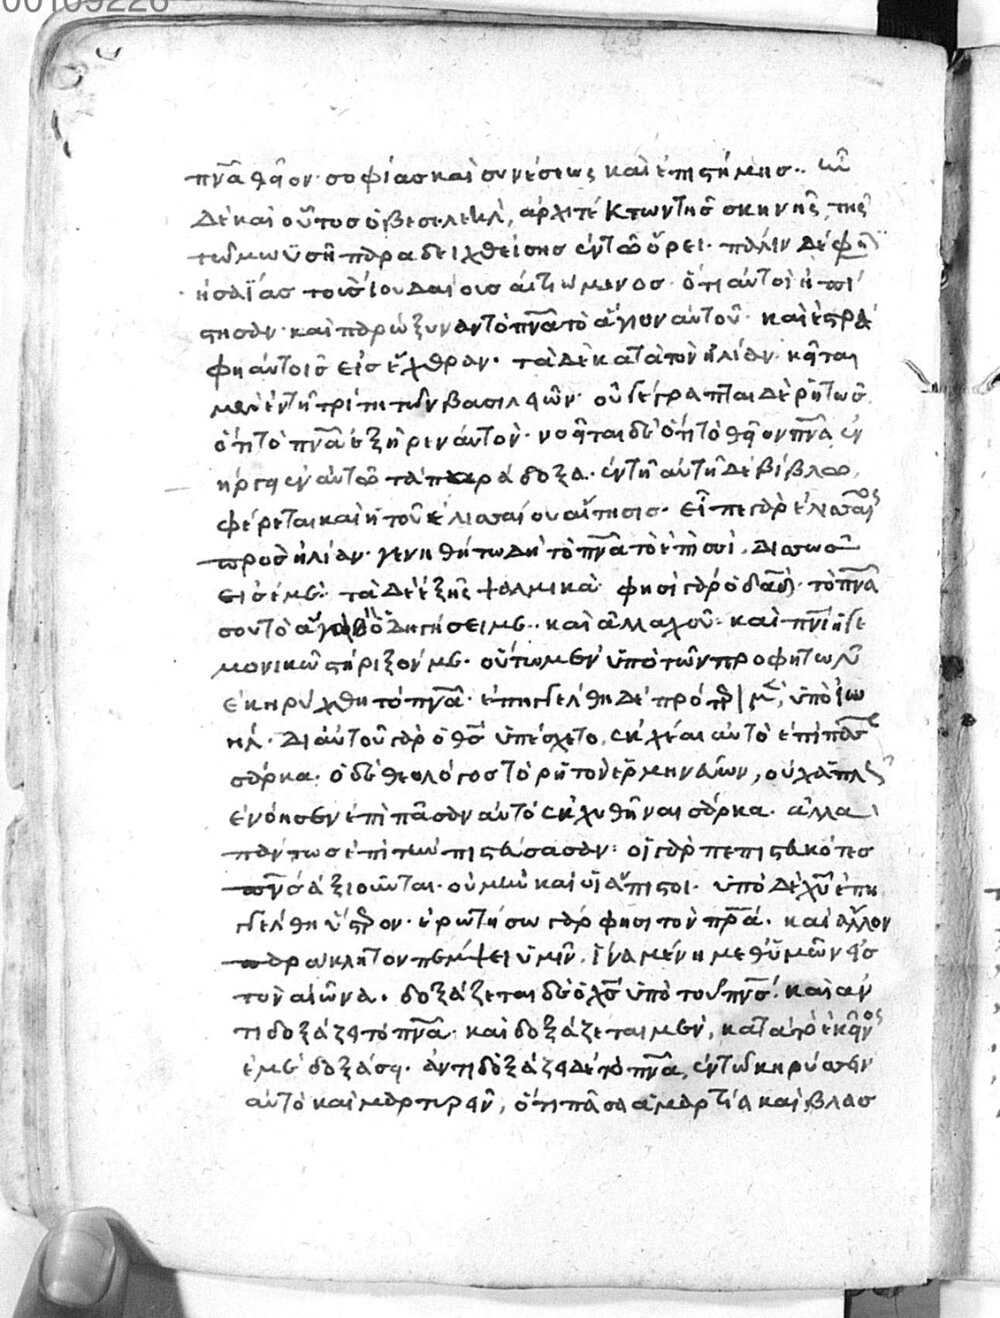 πνᾶ θεῖον· σοφίας καὶ συνέσεως καὶ ἐπιστήμης·· ὢν
δὲ καὶ οὗτος ὁ βεσελεὴλ, ἀρχιτέκτων τῆς σκηνῆς, τῆς
τῶ μωϋσῆ παραδειχθείσης ἐν τῶ ὄρει· πάλιν δέ φη
ἡσαΐας τοὺς ἰουδαίους αἰτιώμενος· ὅτι αὐτοὶ ἠπεί
στησαν· καὶ παρώξυναν τὸ πνᾶ τὸ ἅγιον αὐτοῦ· καὶ ἐστρά
φη αὐτοῖς εἰς ἔχθραν· τὰ δὲ κατὰ τὸν ἠλίαν κεῖται
μὲν ἐν τῆ τρίτη τῶν βασιλειῶν· οὐ γέγραπται δὲ ῥητῶς
ὅτι τὸ πνᾶ ἐξῆρεν αὐτὸν· νοεῖται δὲ ὅτι τὸ θεῖον πνᾶ ἐν
ήργει ἐν αὐτῶ τὰ παράδοξα· ἐν τῆ αὐτῆ δὲ βίβλω,
φέρεται καὶ ἡ τοῦ ἐλισσαίου αἴτησις· εἶπε γὰρ ἐλισσαῖος
πρὸς ἠλίαν· γενηθήτω δὴ τὸ πνᾶ τὸ ἐπὶ σοὶ, δισσῶς
εἰς ἐμέ· τὰ δὲ ἑξῆς ψαλμικὰ· φησὶ γὰρ ὁ δᾱδ· τὸ πνᾶ
σου τὸ ἀγαθὸν ὁδηγήσει με·· καὶ ἀλλαχοῦ· καὶ πνῑ ἡγε
μονικῶ στήριξόν με· οὕτω μὲν ὑπὸ τῶν προφητῶν
ἐκηρύχθη τὸ πνᾶ· ἐπηγγέλθη δὲ πρότερον μὲν, ὑπὸ ἰω
ήλ· δι αὐτοῦ γὰρ ὁ θς̄ ὑπέσχετο, ἐκχέαι αὐτὸ ἐπὶ πᾶσαν
σάρκα· ὁ δὲ θεολόγος τὸ ῥητὸν ἑρμηνεύων, οὐχ ἁπλῶς
ἐνόησεν ἐπὶ πᾶσαν αὐτὸ ἐκχυθῆναι σάρκα· ἀλλὰ
πάντως ἐπὶ τὴν πιστεύσασαν· οἱ γὰρ πεπιστευκότες
πνς̄ ἀξιοῦνται· οὐ μὴν καὶ οἱ ἄπιστοι· ὑπὸ δὲ χῡ ἐπη
γγέλθη ὕστερον· ἐρωτήσω γάρ φησι τὸν πρᾱ· καὶ ἄλλον
παράκλητον πέμψει ὑμῖν, ἵνα μένη μεθ ὑμῶν εἰς
τὸν αἰῶνα· δοξάζεται δὲ ὁ χς̄ ὑπὸ τοῦ πνς̄· καὶ ἀν
τιδοξάζει τὸ πνᾶ· καὶ δοξάζεται μὲν, κατὰ τὸ ἐκεῖνος
ἐμὲ δοξάσει· ἀντιδοξάζει δὲ τὸ πνᾶ, ἐν τῶ κηρύσσειν
αὐτὸ καὶ μαρτυρεῖν, ὅτι πᾶσα ἁμαρτία καὶ βλασ